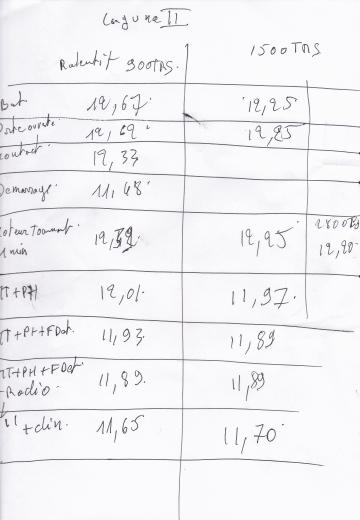 Laguna II
Ralenti 900TRS. 1500TRS
Bat. 12,67 12,25
Porte ouverte. 12,62 12,25
contact. 12,33
Demarrage. 11,48
Moteur Tournant 2800TRS
1 min 12,95 12,90
TT+PH 12,01 11,97
TT+PH+FDat. 11,93 11,89
TT+PH+FDat 11,89 11,89
+Radio
+clim. 11,65 11,70